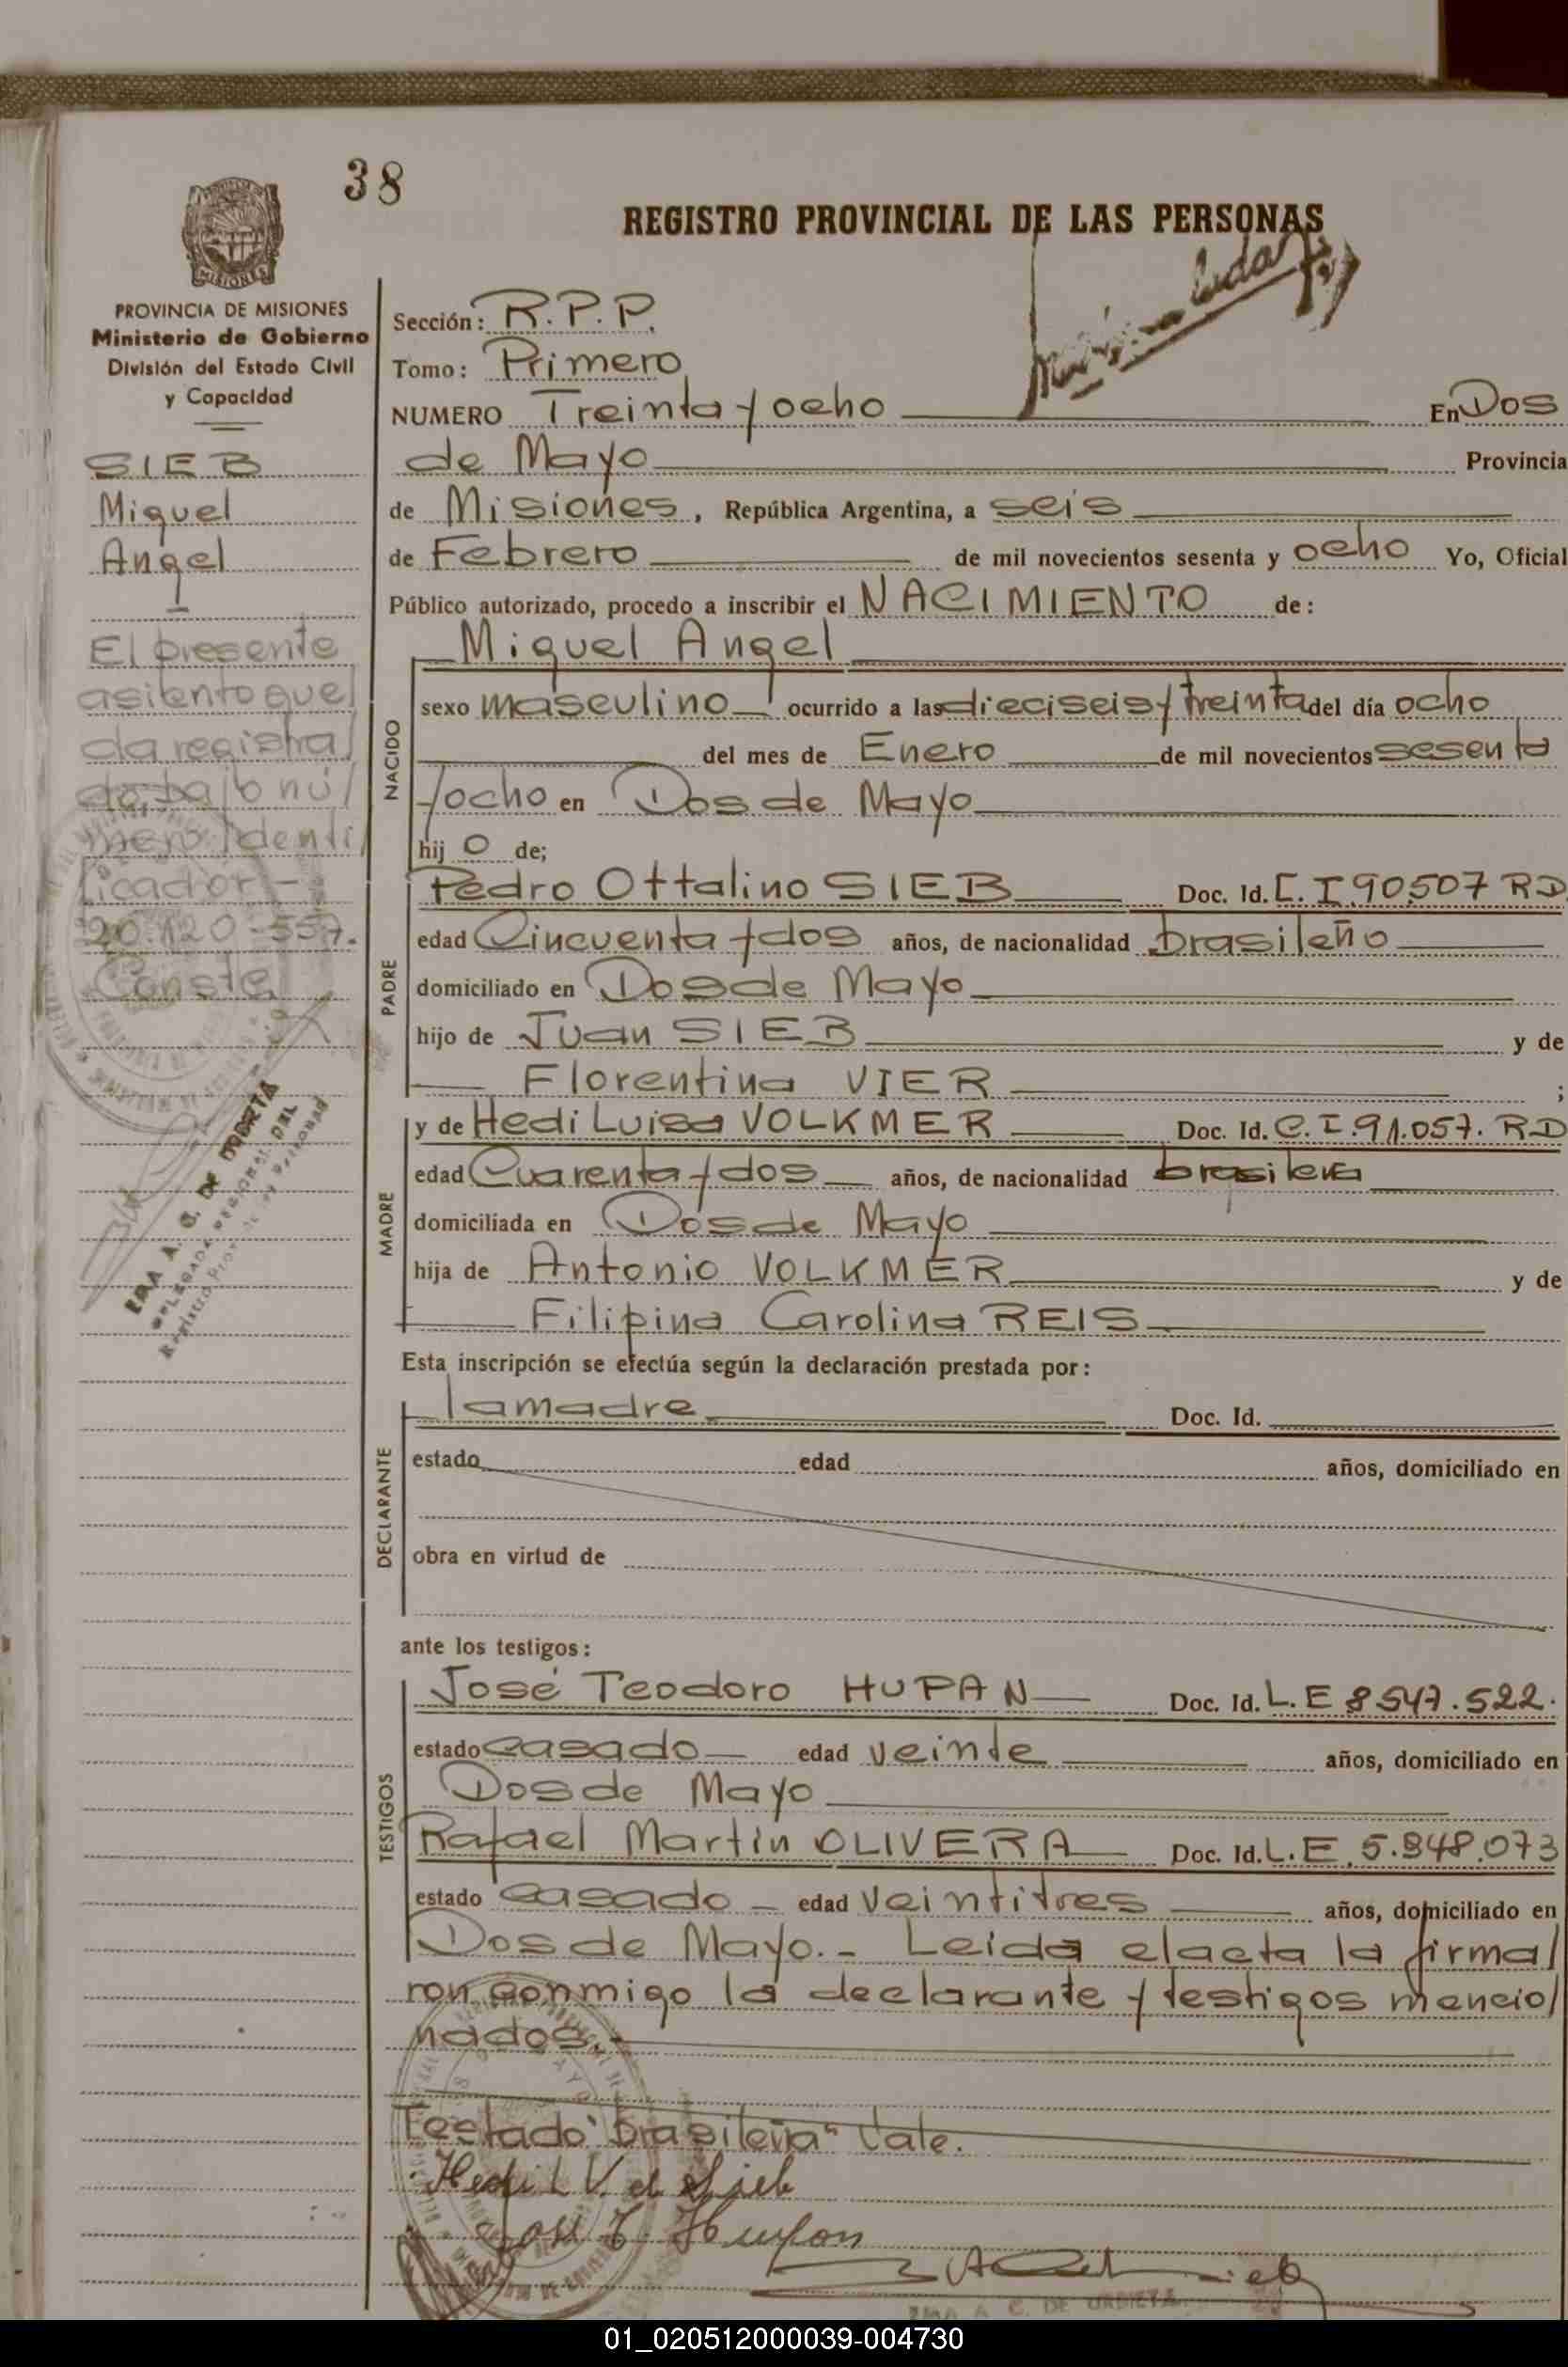 38
REGISTRO PROVINCIAL DE LAS PERSONAS
MISIONES
PROVINCIA DE MISIONES
Ministerio de Gobierno
División del Estado Civil
y Capacidad
SIEB
Miguel
Angel
El presente
asiento que/
da registra/
do bajo nú/
mero identi/
ficador -
20.120-557.
Conste/
Sección: R.P.P.
Tomo: Primero
NUMERO Treinta y ocho En Dos
de Mayo Provincia
de Misiones, República Argentina, a seis
de Febrero de mil novecientos sesenta y ocho Yo, Oficial
Público autorizado, procedo a inscribir el NACIMIENTO de:
NACIDO
Miguel Angel
sexo masculino ocurrido a las dieciseis y treinta del día ocho
del mes de Enero de mil novecientos sesenta
y ocho en Dos de Mayo
hij o de;
PADRE
Pedro Ottalino SIEB Doc. Id. C.I.90507 RD
edad Cincuenta y dos años, de nacionalidad brasileño
domiciliado en Dos de Mayo
hijo de Juan SIEB y de
Florentina VIER ;
MADRE
y de Hedi Luisa VOLKMER Doc. Id. C.I.91.057. RD
edad Cuarenta y dos años, de nacionalidad brasilera
domiciliada en Dos de Mayo
hija de Antonio VOLKMER y de
Filipina Carolina REIS
Esta inscripción se efectúa según la declaración prestada por:
DECLARANTE
la madre Doc. Id.
estado edad años, domiciliado en
obra en virtud de
ante los testigos:
TESTIGOS
José Teodoro HUPAN Doc. Id. L.E 8547.522.
estado casado edad veinte años, domiciliado en
Dos de Mayo
Rafael Martin OLIVERA Doc. Id. L.E.5.848.073
estado casado edad veintitres años, domiciliado en
Dos de Mayo.- Leida el acta la firma/
ron conmigo la declarante y testigos mencio/
nados.-
Testado "brasilera" Vale.
Hedi L V. de Sieb
José T. Hupan
C. DE URBIETA
01_020512000039-004730